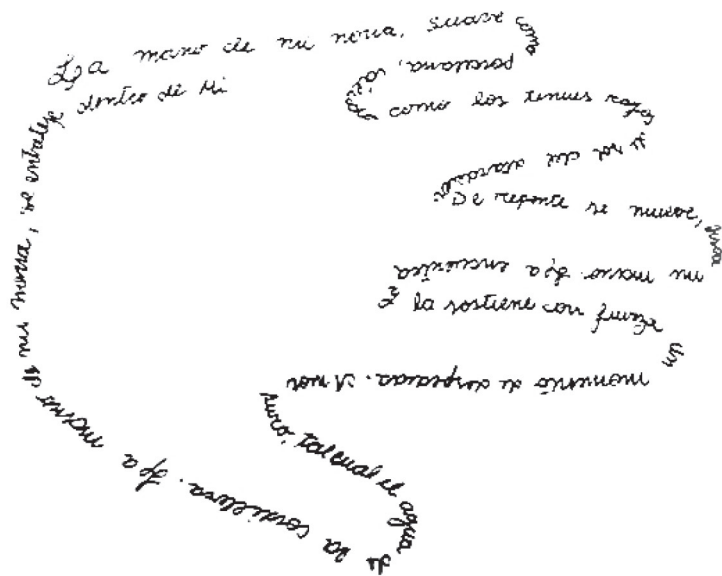 La mano de mi novia, suave
como
porcelana,
cálida
como los tenues rayos
de sol del atardecer.
De repente se mueve,
busca
mi mano. La encuentra
y la sostiene con fuerza
un
momento de. A mor
puro, tal cual el agua de
la cordillera. La mano de
mi novia, se entreteje
dentro de Mi